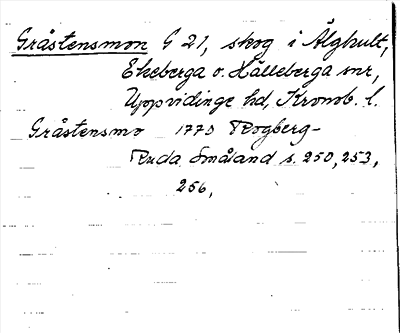 Gråstensmon G 21, skog i Älghult,
Ekeberga o. Hälleberga snr,
Uppvidinge hd, Kronob. l.
Gråstensmo 1770 Rogberg-
Ruda Småland s. 250, 253,
256,